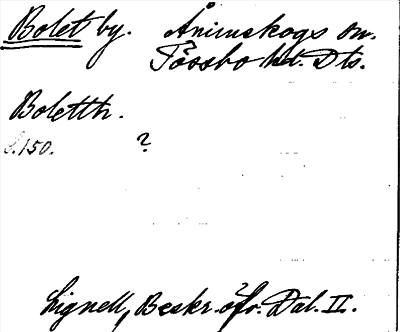 Bolet by. Ånimskogs sn.
Tössbo hd. Dls.
Boletth.
s. 150. ?
Lignell, Beskr. öfv. Dal. II.